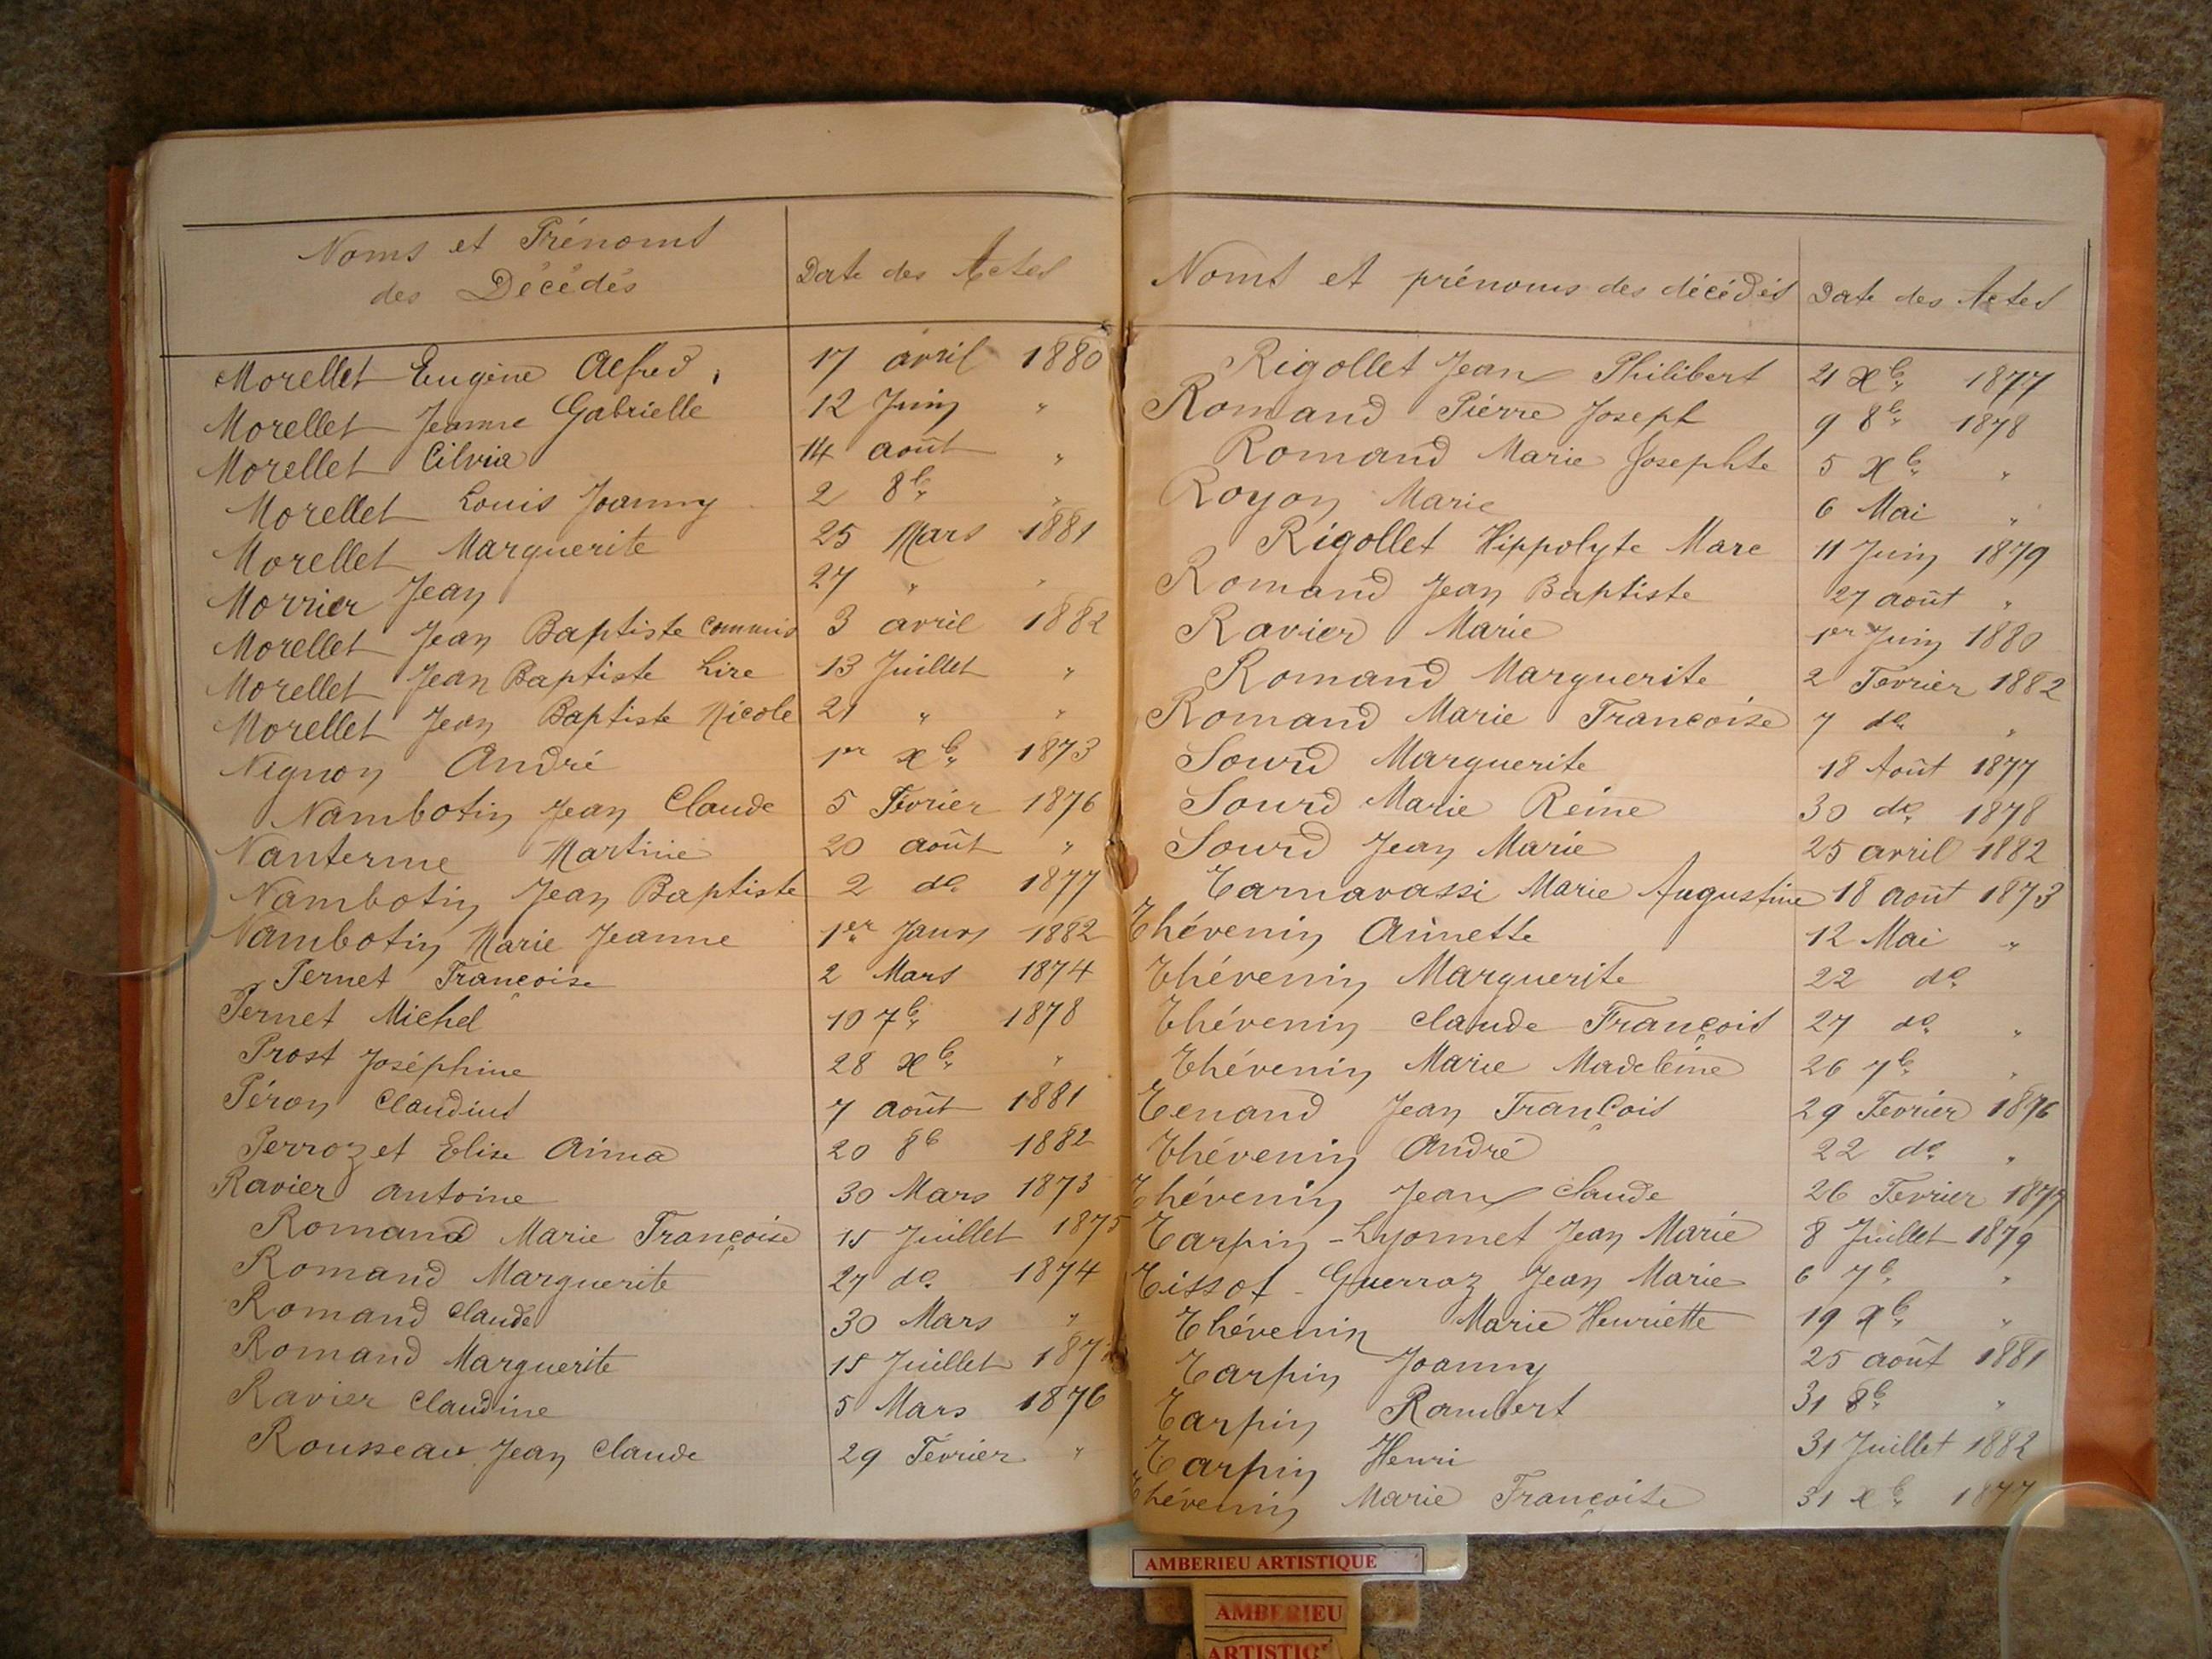 Noms et Prénoms
des Décédés
Date des Actes
Morellet Eugène Alfred 17 avril 1880
Morellet Jeanne Gabrielle 12 Juin "
Morellet Cilvia 14 août "
Morellet Louis Joanny 2 8b. "
Morellet Marguerite 25 Mars 1881
Morrier Jean 27 " "
Morellet Jean Baptiste Commis 3 avril 1882
Morellet Jean Baptiste Lire 13 Juillet "
Morellet Jean Baptiste Nicole 21 " "
Nignon André 1er xb. 1873
Nambotin Jean Claude 5 Février 1876
Nanterme Martine 20 août "
Nambotin Jean Baptiste 2 do. 1877
Nambotin Marie Jeanne 1er Janv 1882
Pernet Françoise 2 Mars 1874
Pernet Michel 10 7b. 1878
Prost Joséphine 28 xb. "
Péron Claudius 7 août 1881
Perrozet Elise Anna 20 8b 1882
Ravier Antoine 30 Mars 1873
Romand Marie Françoise 15 Juillet 1875
Romand Marguerite 27 do. 1874
Romand Claude 30 Mars "
Romand Marguerite 15 Juillet
Ravier Claudine 5 Mars 1876
Rousseau Jean Claude 29 Février "
Noms et prénoms des décédés Date des Actes
Rigollet Jean Philibert 21 xb. 1877
Romand Pierre Joseph 9 8b. 1878
Romand Marie Josephte 5 xb. "
Royon Marie 6 Mai "
Rigollet Hippolyte Marc 11 Juin 1879
Romand Jean Baptiste 27 août "
Ravier Marie 1er Juin 1880
Romand Marguerite 2 Fevrier 1882
Romand Marie Françoise 7 do. "
Sourd Marguerite 18 Août 1877
Sourd Marie Reine 30 do. 1878
Sourd Jean Marie 25 avril 1882
Tarnavassi Marie Augustine 18 août 1873
Thévenin Annette 12 Mai "
Thévenin Marguerite 22 do.
Thévenin Claude François 27 do. "
Thévenin Marie Madeleine 26 7b. "
Tenand Jean François 29 Fevrier 1876
Thévenin André 22 do. "
Thévenin Jean Claude 26 Fevrier 1877
Tarpin - Lyonnet Jean Marie 8 Juillet 1879
Tissot - Guerraz Jean Marie 6 7b. "
Thévenin Marie Henriette 19 xb. "
Tarpin Joanny 25 août 1881
Tarpin Rambert 31 8b. "
Tarpin Henri 31 Juillet 1882
Thévenin Marie Françoise 31 xb. 1877
AMBERIEU ARTISTIQUE
AMBERIEU